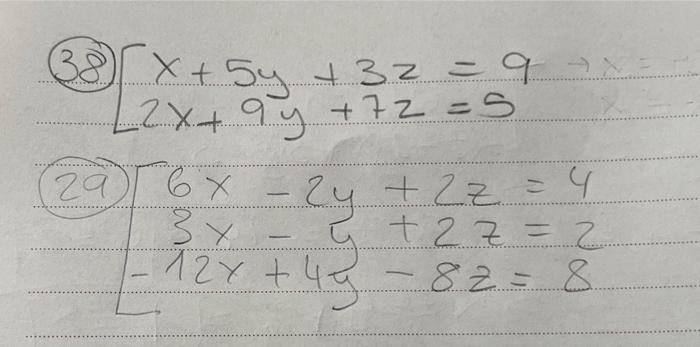 38 x + 5y + 3z = 9 → x =
2x + 9y + 7z = 5
29 6x - 2y + 2z = 4
3x - y + 2z = 2
-12x + 4y - 8z = 8